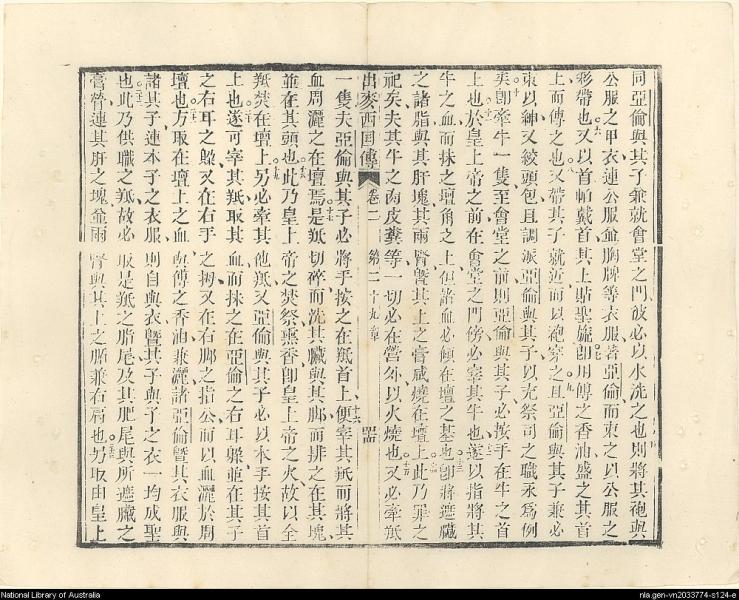 同亞倫與其子兼就會堂之門彼必以水洗之也則將其袍與
公服之甲衣連公服並胸牌等衣服著亞倫而束之以公服之
彩帶也又以首帕戴首其上貼聖旒卽用傅之香油盛之其首
上而傅之也又帶其子就近而以袍穿之且亞倫與其子兼必
束以紳又絞頭包且調派亞倫與其子以充祭司之職永爲例
矣卽牽牛一隻至會堂之前則亞倫與其子必按手在牛之首
上也於皇上帝之前在會堂之門傍必宰其牛也遂以指將其
牛之血而抹之壇角之上但諸血必傾在壇之基也卽將遮臟
之諸脂與其肝塊其兩腎曁其上之膏咸燒在壇上此乃罪之
祀矣夫其牛之肉皮糞等一切必在營外以火燒也又必牽羝
出麥西國傳 卷二 第二十九章
一隻夫亞倫與其子必將手按之在羝首上便宰其羝而將其
血周灑之在壇焉是羝切碎而洗其臟與其脚而排之在其塊
並在其頭也此乃皇上帝之焚祭燻香卽皇上帝之火故以全
羝焚在壇上另必牽其他羝又亞倫與其子必以本手按其首
上也遂可宰其羝取其血而抹之在亞倫之右耳躲並在其子
之右耳之躲又在右手之拇又在右脚之指公而以血灑於周
壇也方取在壇上之血與傅之香油兼灑諸亞倫曁其衣服與
諸其子連本子之衣服則自與衣曁其子與子之衣一均成聖
也此乃供職之羝故必取是羝之脂尾及其肥尾與所遮臟之
膏營連其肝之塊並兩腎與其上之脂兼右肩也另取由皇上
National Library of Australia
nla.gen-vn2033774-s124-e